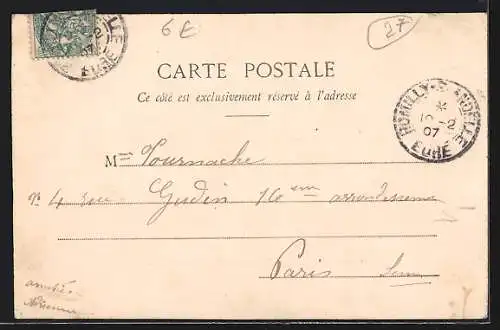 6 E
27
CARTE POSTALE
Ce côté est exclusivement réservé à l'adresse
ROMILLY-S-ANDELLE
*
10-2
07
EURE
Mme Tournache
No 4 rue Gudin 16 em arrondissement
Paris